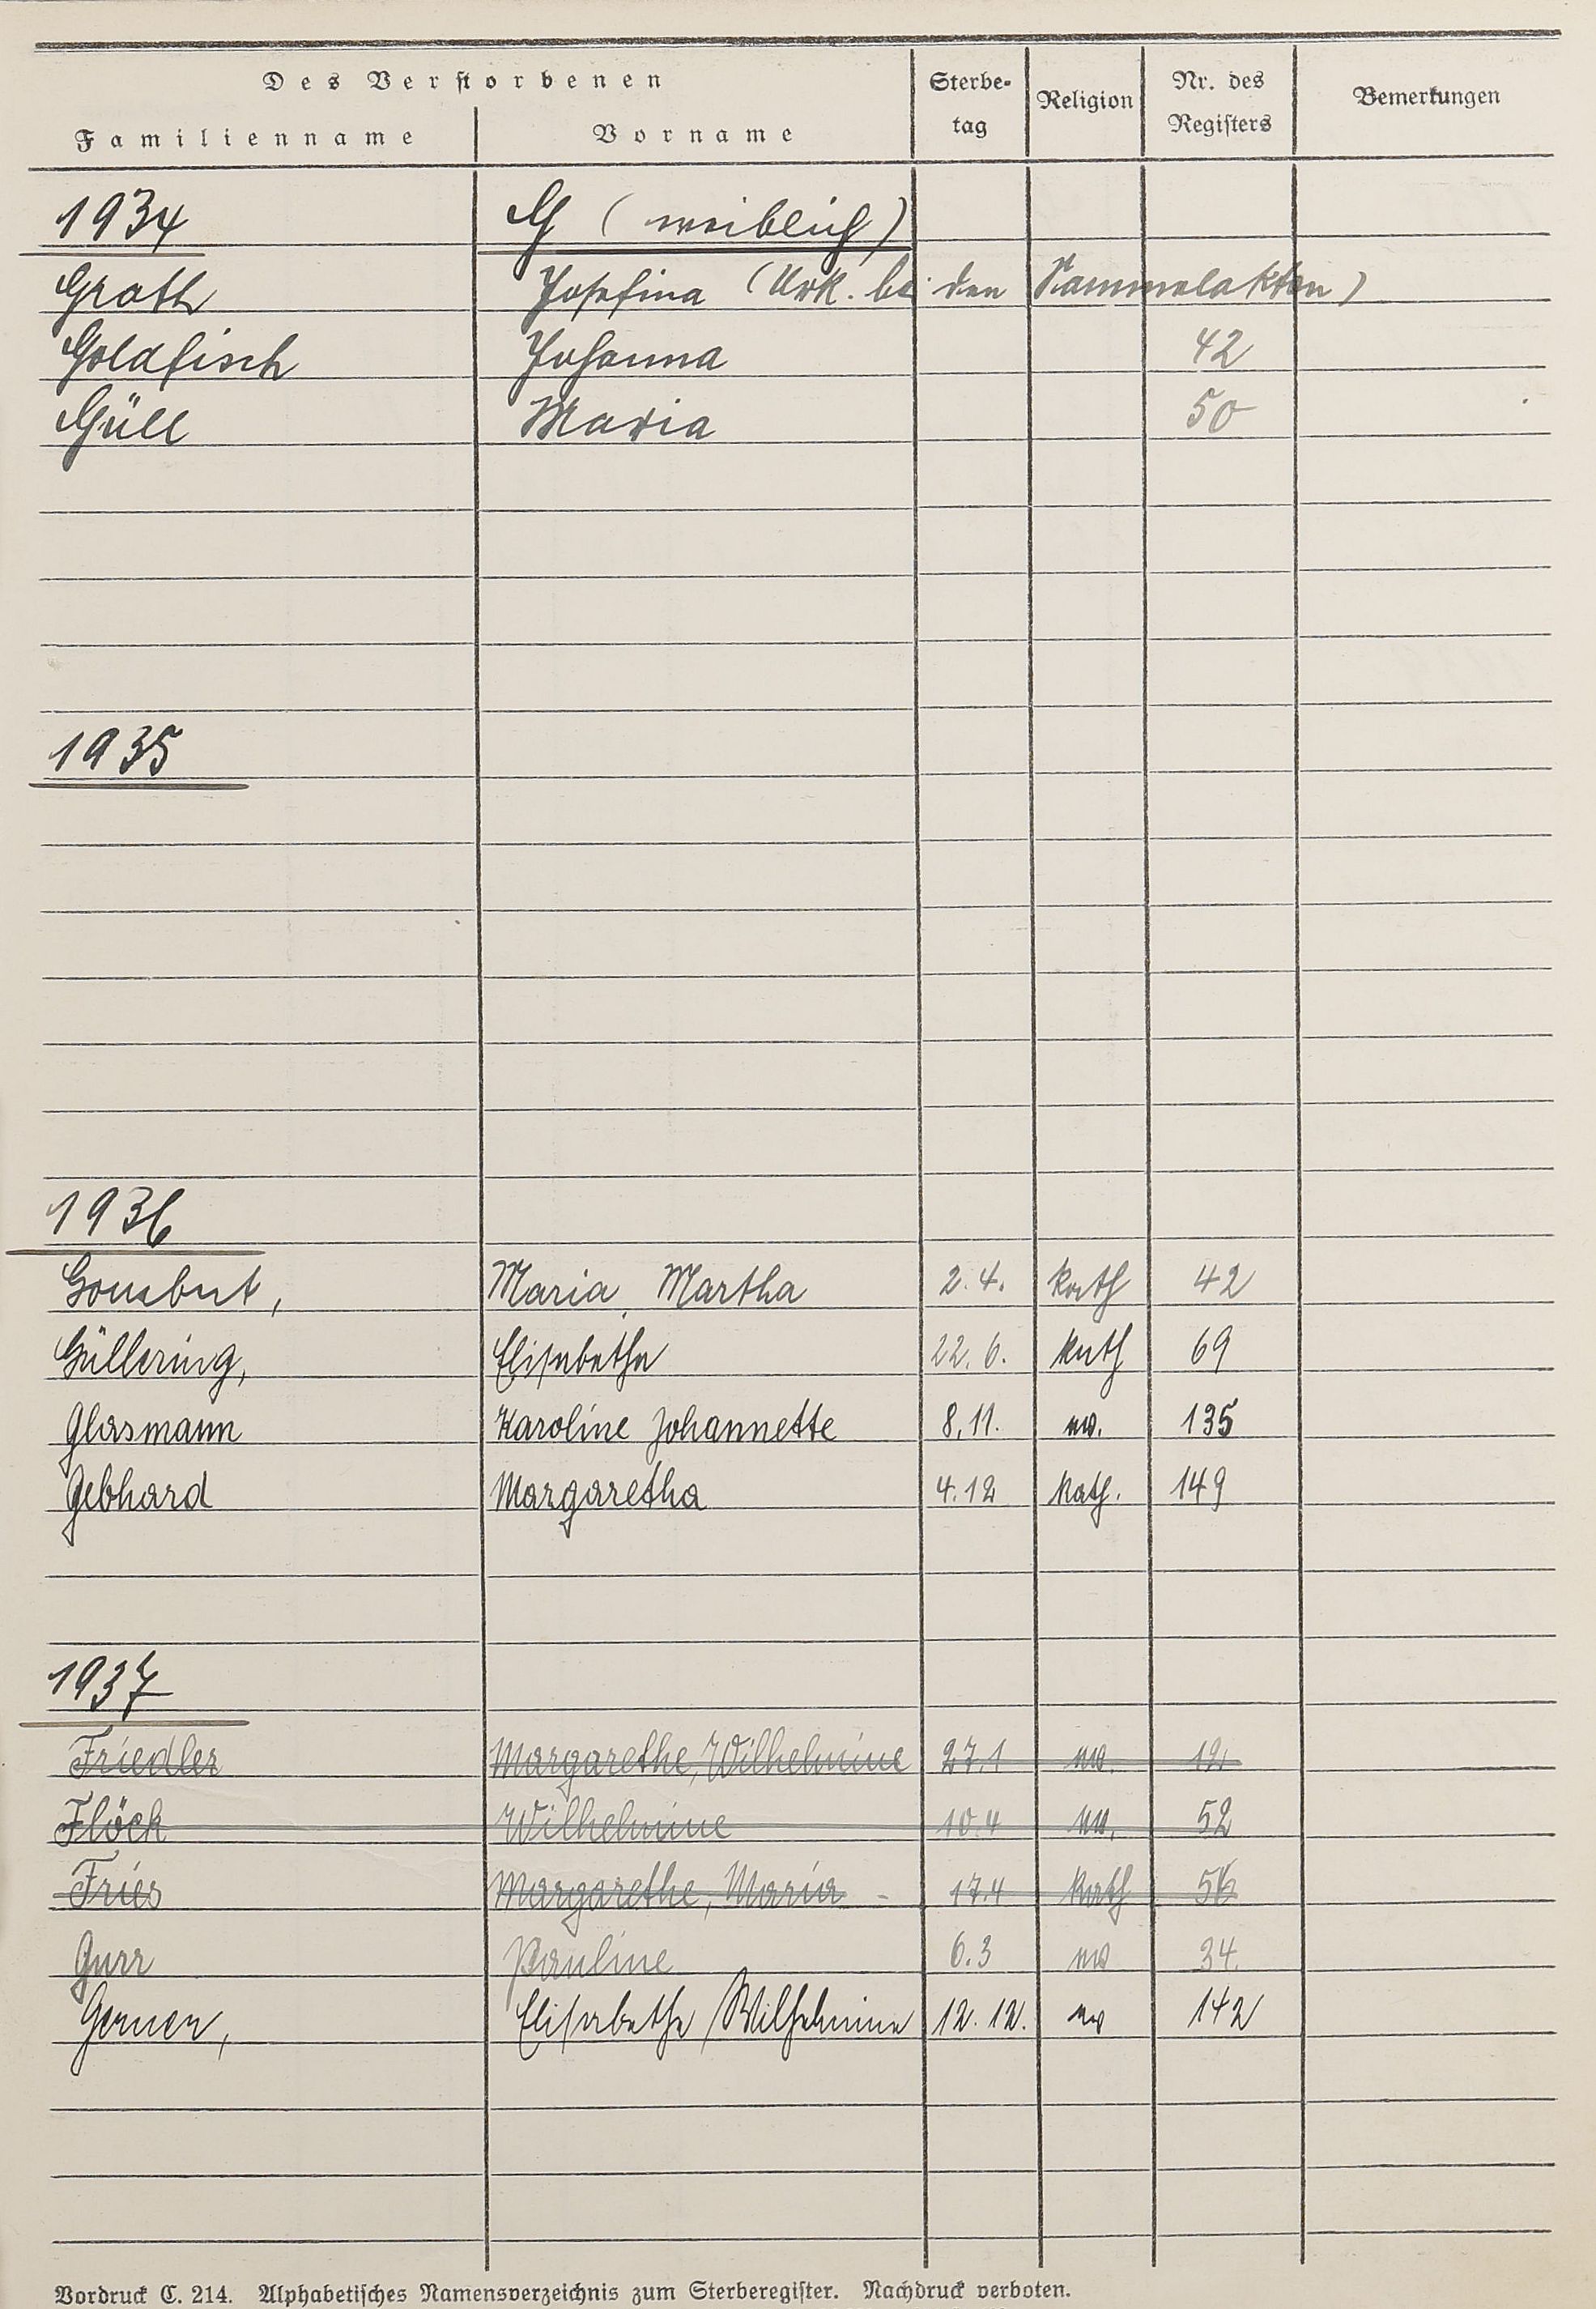 Des Verstorbenen
Familienname Vorname Sterbe-tag Religion Nr. des Registers Bemerkungen
1934 G (weiblich)
Groth Josefina (Urk. bei den Sammelakten)
Goldfisch Johanna 42
Güll Maria 50
1935
1936
Maria Martha 2.4. kath 42
Güllering, Elisabetha 22.6. kath 69
Glasmann Karoline Johannette 8.11. ev. 135
Gebhard Margaretha 4.12 kath. 149
1937
Friedler Margarethe, Wilhelmine 27.1 ev. 12
Flöck Wilhelmine 10.4 ev. 52
Fries Margarethe, Maria 17.4 kath 56
Gurr Pauline 6.3 ev 34
Elisabetha Wilhelmine 12.12. ev 142
Vordruck C. 214. Alphabetisches Namensverzeichnis zum Sterberegister. Nachdruck verboten.